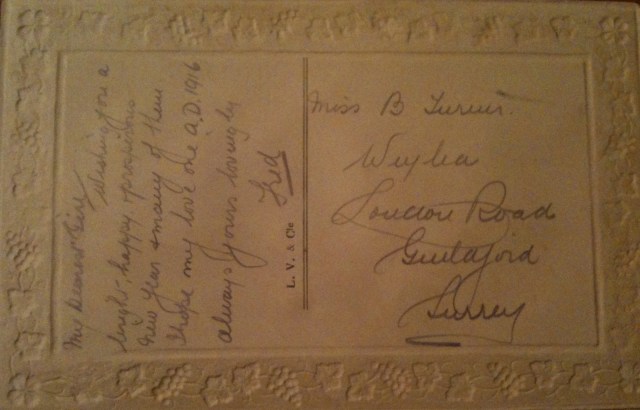 My Dearest Girl
Wishing you a
bright, happy & prosperous
New Year & many of them
I hope my love one A.D. 1916
always yours lovingly
Fred
L. V. & Co
Miss B Turner.
Weylea
London Road
Guildford
Surrey